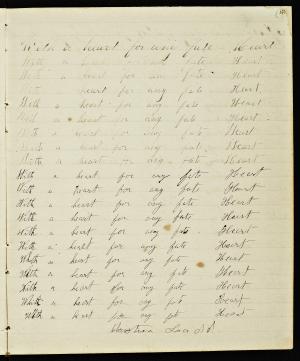 With a heart for any fate Heart
With a heart for any fate Heart
With a heart for any fate Heart
With heart for any fate Heart
With a heart for any fate Heart
With a heart for any fate Heart
With a heart for any fate Heart
With a heart for any fate Heart
With a heart for any fate Heart
With a heart for any fate Heart
With a heart for any fate Heart
With a heart for any fate Heart
With a heart for any fate Heart
With a heart for any fate Heart
With a heart for any fate Heart
With a heart for any fate Heart
With a heart for any fate Heart
With a heart for any fate Heart
With a heart for any fate Heart
With a heart for any fate Heart